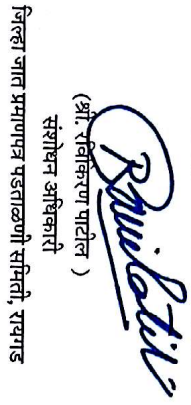 (श्री. रविकिरण पाटील )
संशोधन अधिकारी
जिल्हा जात प्रमाणपत्र पडताळणी समिती, रायगड